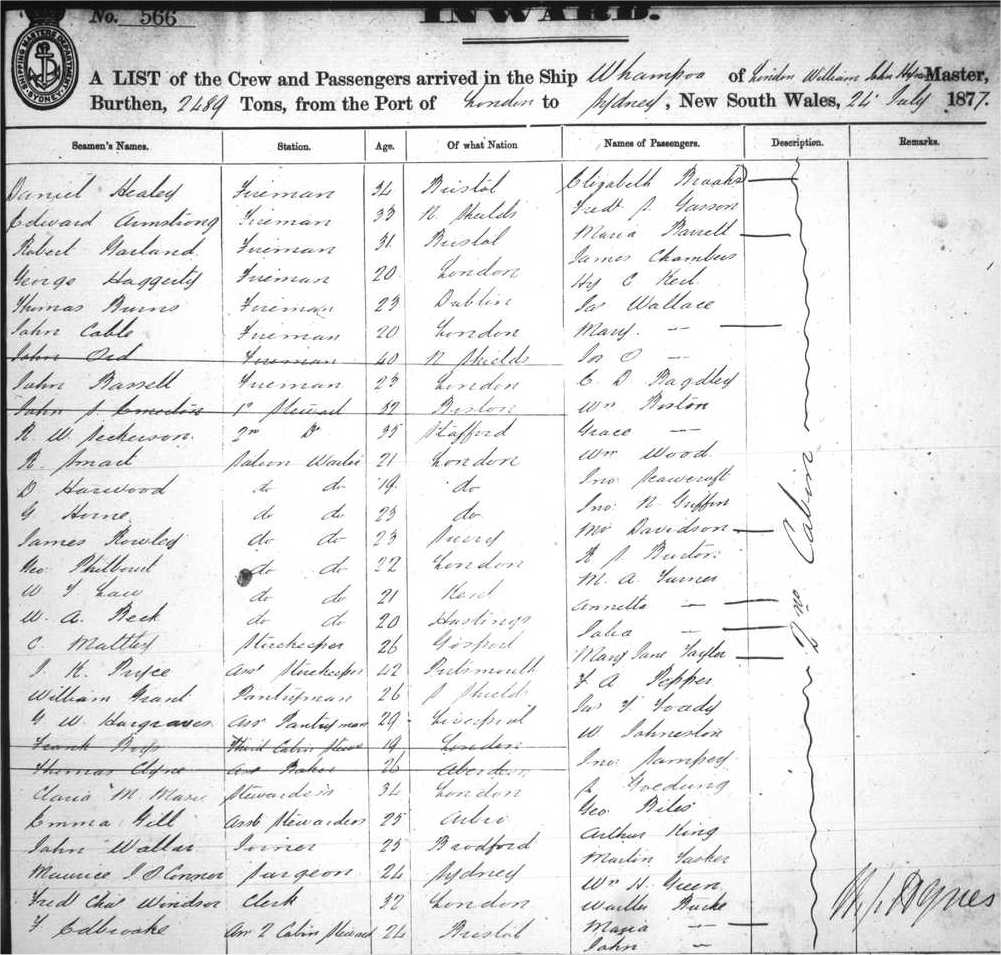 No. 566
INWARD.
SHIPPING MASTER'S DEPARTMENT SYDNEY
A LIST of the Crew and Passengers arrived in the Ship Whampoa of London William John Master,
Burthen, 2489 Tons, from the Port of London to Sydney, New South Wales, 24 July 1877.
Seamen's Names. Station. Age. Of what Nation Names of Passengers. Description. Remarks.
Daniel Healey Fireman 34 Bristol Elizabeth Brooks
Edward Armstrong Fireman 33 N Shields Fredk J.
Robert Garland Fireman 31 Bristol Maria Barrett
George Haggerty Fireman 20 London James Chambers
Thomas Burns Fireman 23 Dublin Hy C
John Cable Fireman 20 London Jas Wallace
John Ord Fireman 40 N Shields Mary —
John Bassell Fireman 23 London Jas O —
John J. 1st Steward 32 Boston C D Bagdley
R. W. 2nd Do 35 Stafford Wm Boston
R. Smart Saloon Waiter 21 London Grace —
D Harwood do do 19 do Wm Wood
G Horne do do 23 do Jno
James Rowley do do 23 Jno N Griffin
Geo Philbout do do 22 London Mrs Davidson
W T Law do do 21 Kent R J Burton
W. A. Beck do do 20 Hastings M. A. Turner
C. Storekeeper 26 Gosport Annette —
J. R. Pryce Asst Storekeeper 42 Portsmouth Julia —
William Grant Pantryman 26 S Shields Mary Jane Taylor
G W Hargraves Asst Pantryman 29 Liverpool F A Pepper
Frank Third Cabin 19 London Jas T Toady
Thomas Clyne Asst Baker 26 Aberdeen W Johnston
M. Stewardess 34 London Jno
Emma Gill Asst Stewardess 25 J
John Waller Joiner 25 Bradford Geo Biles
Maurice J O'Connor Surgeon 24 Sydney Arthur King
Fred Chas Windsor Clerk 32 London Martin Tasker
F Edbrooke Asst 2 Cabin Steward 24 Bristol Wm H. Green
Walter Burke
Maria —
John —
2nd Cabin
W. J. Hynes